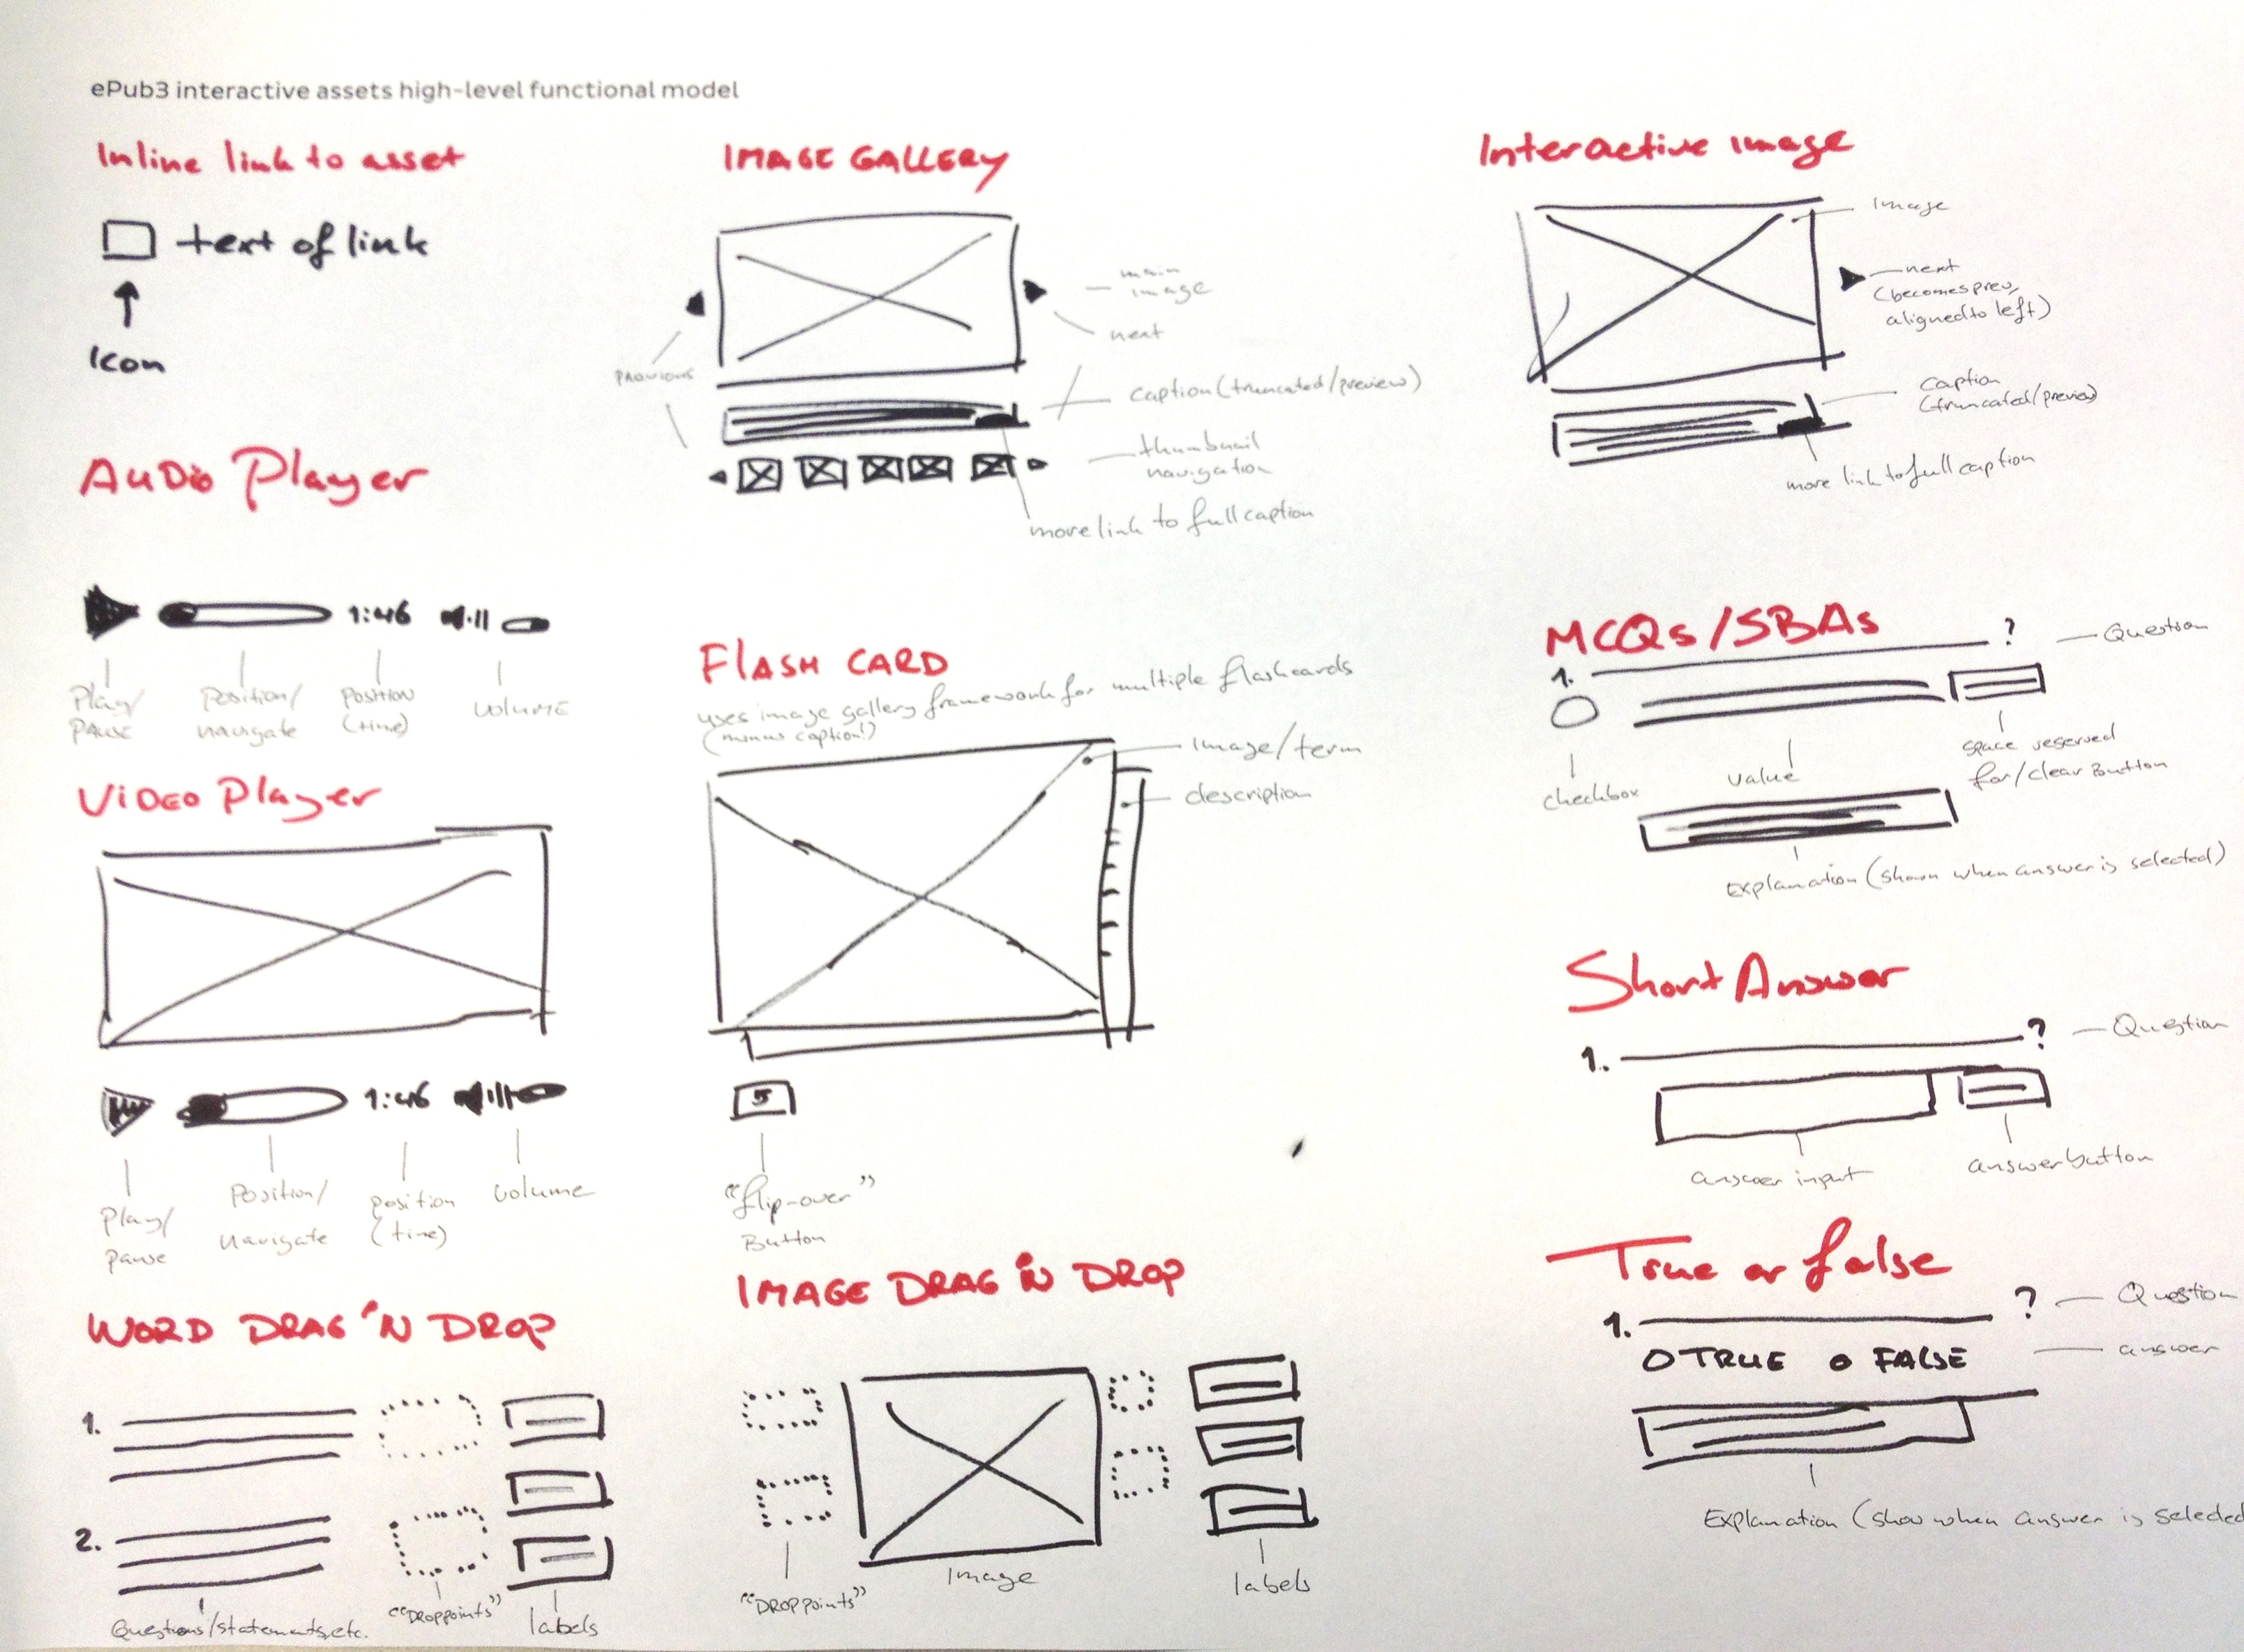 ePub3 interactive assets high-level functional model
Inline link to asset
text of link
Icon
Audio Player
1:46
Play/
Pause
Position/
navigate
Position
(time)
volume
Video Player
1:46
Play/
pause
Position/
navigate
position
(time)
volume
WORD DRAG 'N DROP
1.
2.
Questions/statements, etc.
"DROPpoints"
labels
IMAGE GALLERY
main
image
next
Previous
caption (truncated/preview)
thumbnail
navigation
more link to full caption
FLASH CARD
uses image gallery framework for multiple flashcards
(minus caption!)
Image/term
description
"flip-over"
Button
IMAGE DRAG 'N DROP
"DROPpoints"
Image
labels
Interactive image
Image
next
(becomes prev,
aligned to left)
Caption
(truncated/preview)
more link to full caption
MCQs/SBAs
1. ?
Question
checkbox
value
space reserved
for/clear Button
Explanation (shown when answer is selected)
Short Answer
1. ?
Question
answer input
answer button
True or false
1. ?
Question
TRUE FALSE
answer
Explanation (show when answer is selected